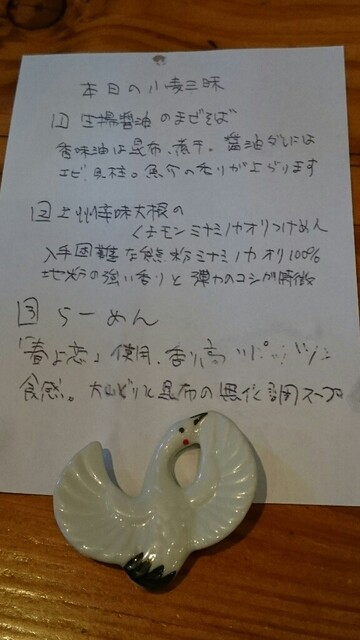 本日の小麦三昧
1 生揚醤油のまぜそば
香味油は昆布、煮干。醤油ダレには
エビ、貝柱。魚介の香りが上がります
2 上州辛味大根の
くまモンミナミノカオリつけめん
入手困難な熊粉ミナミノカオリ100%
地粉の強い香りと弾力のコシが特徴
3 らーめん
「春よ恋」使用、香り高
食感。大山どりと昆布の無化調スープ